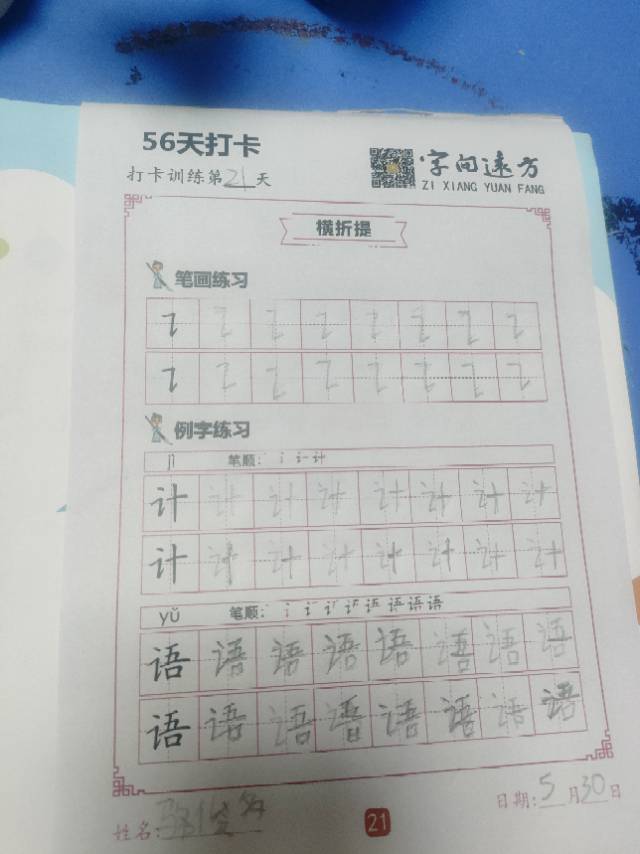 56天打卡
打卡训练第21天
字向远方
ZI XIANG YUAN FANG
横折提
笔画练习
例字练习
jì 笔顺:
计 计 计 计 计 计 计 计
计 计 计 计 计 计 计 计
yǔ 笔顺:
语 语 语 语 语 语 语 语
语 语 语 语 语 语 语 语
姓名:
日期:5月30日
21